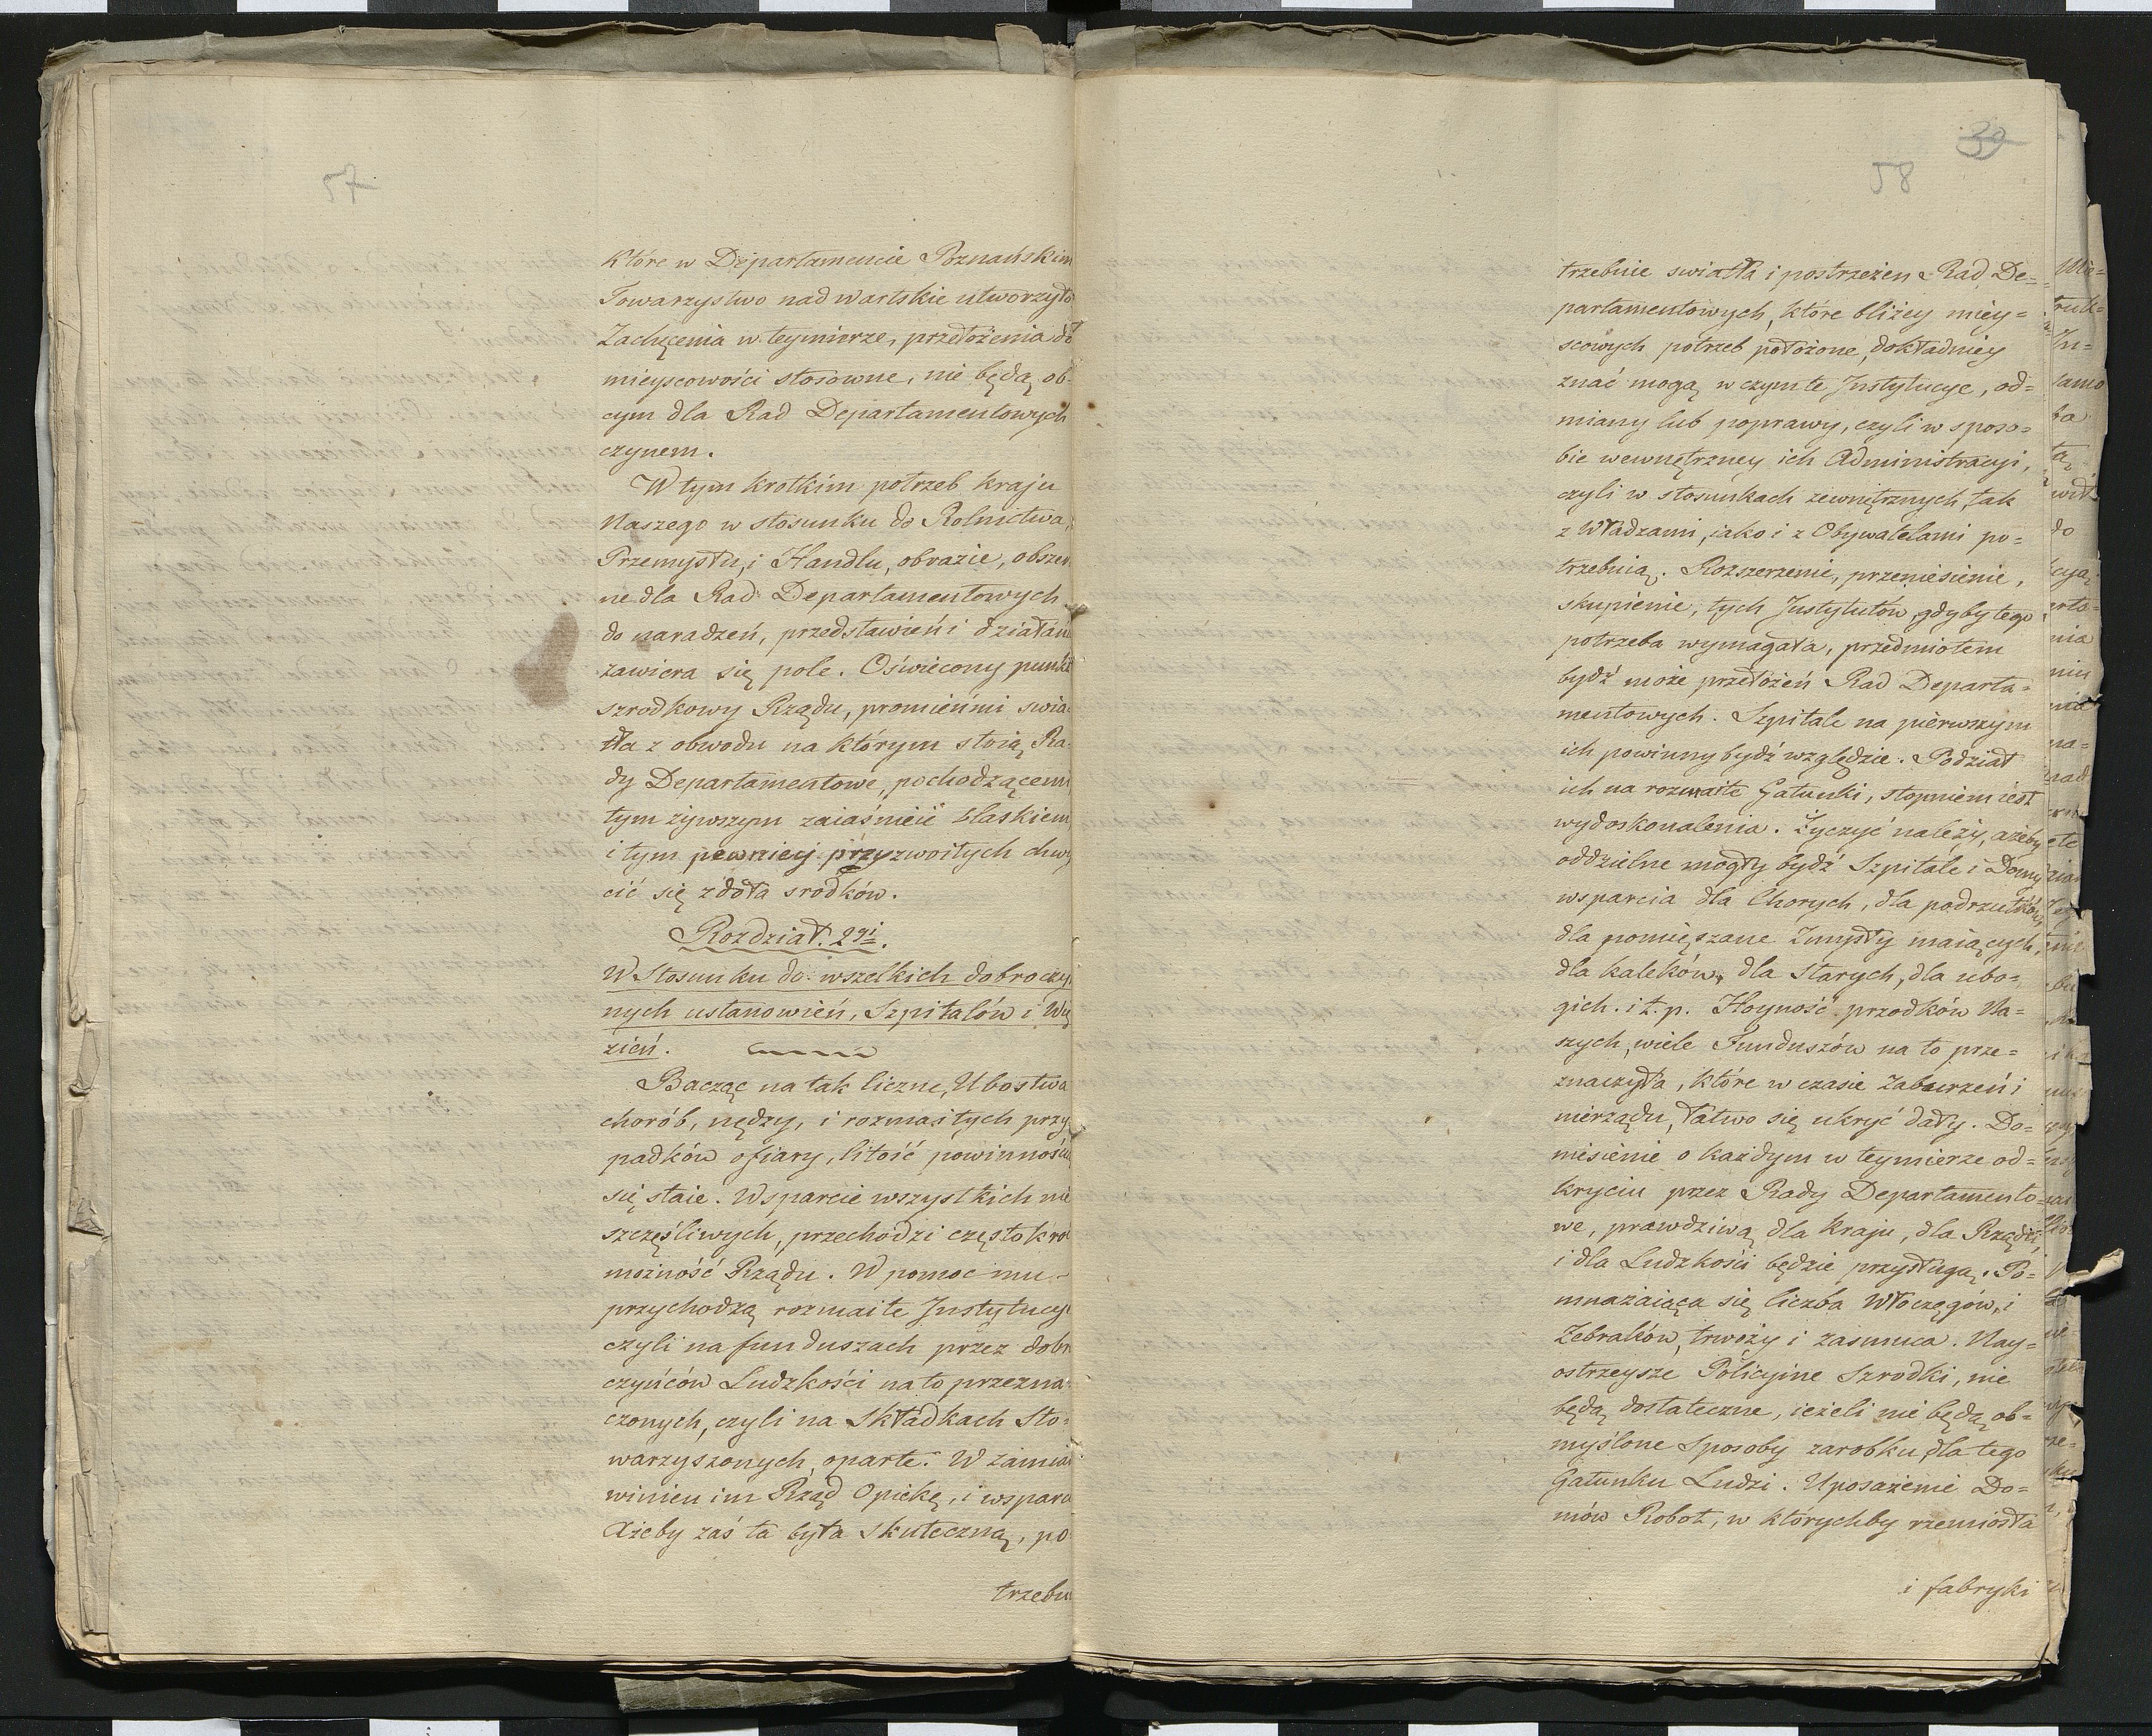 57
które w Departamencie Poznańskim
Towarzystwo nadwartskie utworzyło
Zachęcenia w teymierze, przełożenia do
mieyscowości stosowne, nie będą ob-
cym dla Rad Departamentowych
czynem.
W tym krotkim potrzeb kraju
Naszego w stosunku do Rolnictwa,
Przemysłu, i Handlu, obrazie, obszer
ne dla Rad Departamentowych
do naradzeń, przedstawień i działań
zawiera się pole. Oświecony punkt
szrodkowy Rządu, promieńmi swia-
tła z obwodu na którym stoią Ra-
dy Departamentowe, pochodzącemi
tym żywszym zaiaśnieć blaskiem
i tym pewniey przyzwoitych chwy
cić się zdoła srodków.
Rozdział. 2gi.
W Stosunku do wszelkich dobroczyn
nych ustanowień, Szpitalów i Wię
zień.
Bacząc na tak liczne, Ubostwa
chorób, nędzy, i rozmaitych przy
padków ofiary, litość powinnością
się staie. Wsparcie wszystkich nie
szczęśliwych, przechodzi częstokroć
możność Rządu. W pomoc mu
przychodzą rozmaite Instytucye
czyli na funduszach przez dobr
czyńców Ludzkości na to przezna-
czonych, czyli na Składkach Sto-
warzyszonych, oparte. W zamian
winien im Rząd Opiekę, i wsparci
Ażeby zaś ta była skuteczną, po
trzebu
39
58
trzebnie swiatła i postrzeżen Rad De=
partamentowych, które bliżey miey=
scowych potrzeb położone, dokładniey
znać mogą w czym te Instytucye, od=
miany lub poprawy, czyli w sposo=
bie wewnętrzney ich Administracyi,
czyli w stosunkach zewnętrznych, tak
z Władzami, iako i z Obywatelami po=
trzebuią. Rozszerzenie, przeniesienie,
skupienie, tych Instytutów, gdyby tego
potrzeba wymagała, przedmiotem
bydź może przełożeń Rad Departa=
mentowych. Szpitale na pierwszym
ich powinny bydź względzie. Podział
ich na rozmaite Gatunki, stopniem iest
wydoskonalenia. Życzyć należy, ażeby
oddzielne mogły bydź Szpitale i Domy
wsparcia dla Chorych, dla podrzutków,
dla pomięszane Zmysły maiących,
dla kaleków, dla starych, dla ubo=
gich. i t. p. Hoyność przodków Na=
szych, wiele Funduszów na to prze=
znaczyła, które w czasie Zaburzeń i
nierządu, łatwo się ukryć dały. Do=
niesienie o każdym w teymierze od=
kryciu przez Rady Departamento=
we, prawdziwą dla kraju, dla Rządu,
i dla Ludzkości będzie przysługą. Po=
mnażaiąca się liczba Włoczęgów, i
Żebraków, trwoży i zasmuca. Nay=
ostrzeysze Policyine Szrodki, nie
będą dostateczne, ieżeli nie będą ob=
myślone Sposoby zarobku, dla tego
Gatunku Ludzi. Uposażenie Do=
mów Robot, w którychby rzemiosła
i fabryki